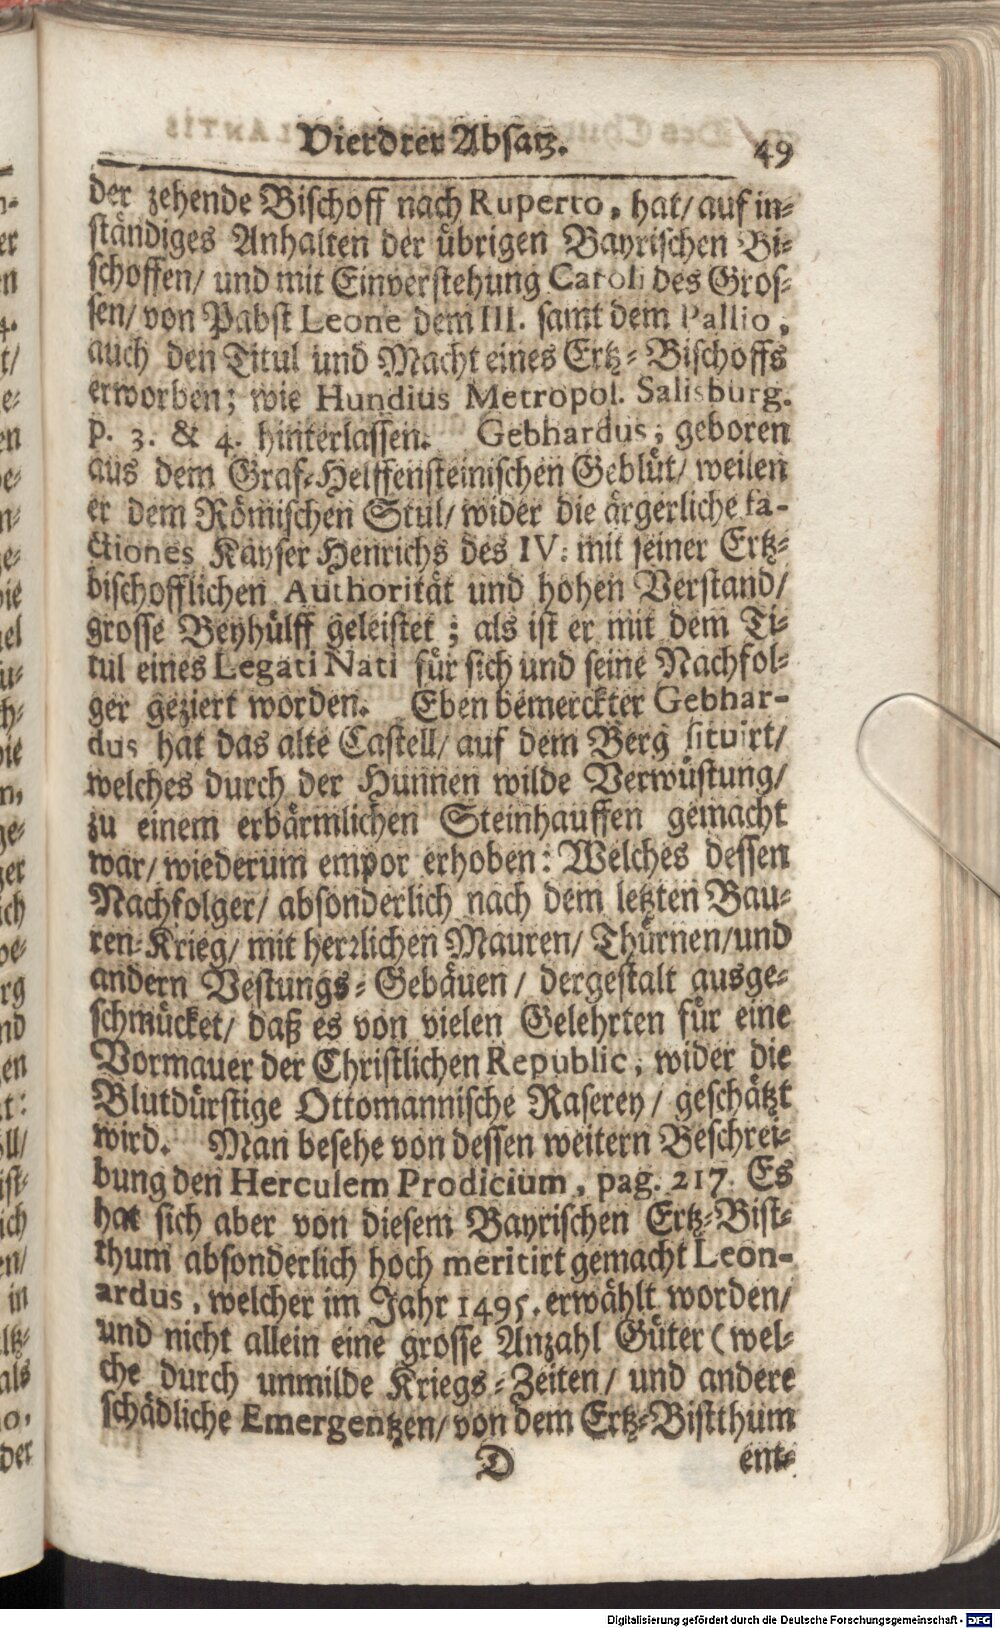 Vierdter Absatz. 49
der zehende Bischoff nach Ruperto, hat/ auf in-
ständiges Anhalten der übrigen Bayrischen Bi-
schoffen/ und mit Einverstehung Caroli des Gros-
sen/ von Pabst Leone dem III. samt dem Pallio,
auch den Titul und Macht eines Ertz-Bischoffs
erworben; wie Hundius Metropol. Salisburg.
p. 3. & 4. hinterlassen. Gebhardus, geboren
aus dem Graf-Helffensteinischen Geblüt/ weilen
er dem Römischen Stul/ wider die ärgerliche fa-
ctiones Kayser Henrichs des IV. mit seiner Ertz-
bischofflichen Authorität und hohen Verstand/
grosse Beyhülff geleistet; als ist er mit dem Ti-
tul eines Legati Nati für sich und seine Nachfol-
ger geziert worden. Eben bemerckter Gebhar-
dus hat das alte Castell/ auf dem Berg situirt/
welches durch der Hunnen wilde Verwüstung/
zu einem erbärmlichen Steinhauffen gemacht
war/ wiederum empor erhoben: Welches dessen
Nachfolger/ absonderlich nach dem letzten Bau-
ren-Krieg/ mit herrlichen Mauren/ Thürnen/ und
andern Vestungs-Gebäuen/ dergestalt ausge-
schmücket/ daß es von vielen Gelehrten für eine
Vormauer der Christlichen Republic, wider die
Blutdürstige Ottomannische Raserey/ geschätzt
wird. Man besehe von dessen weitern Beschrei-
bung den Herculem Prodicium, pag. 217. Es
hat sich aber von diesem Bayrischen Ertz-Bist-
thum absonderlich hoch meritirt gemacht Leon-
ardus, welcher im Jahr 1495. erwählt worden/
und nicht allein eine grosse Anzahl Güter (wel-
che durch unmilde Kriegs-Zeiten/ und andere
schädliche Emergentzen/ von dem Ertz-Bistthum
D ent-
Digitalisierung gefördert durch die Deutsche Forschungsgemeinschaft - DFG